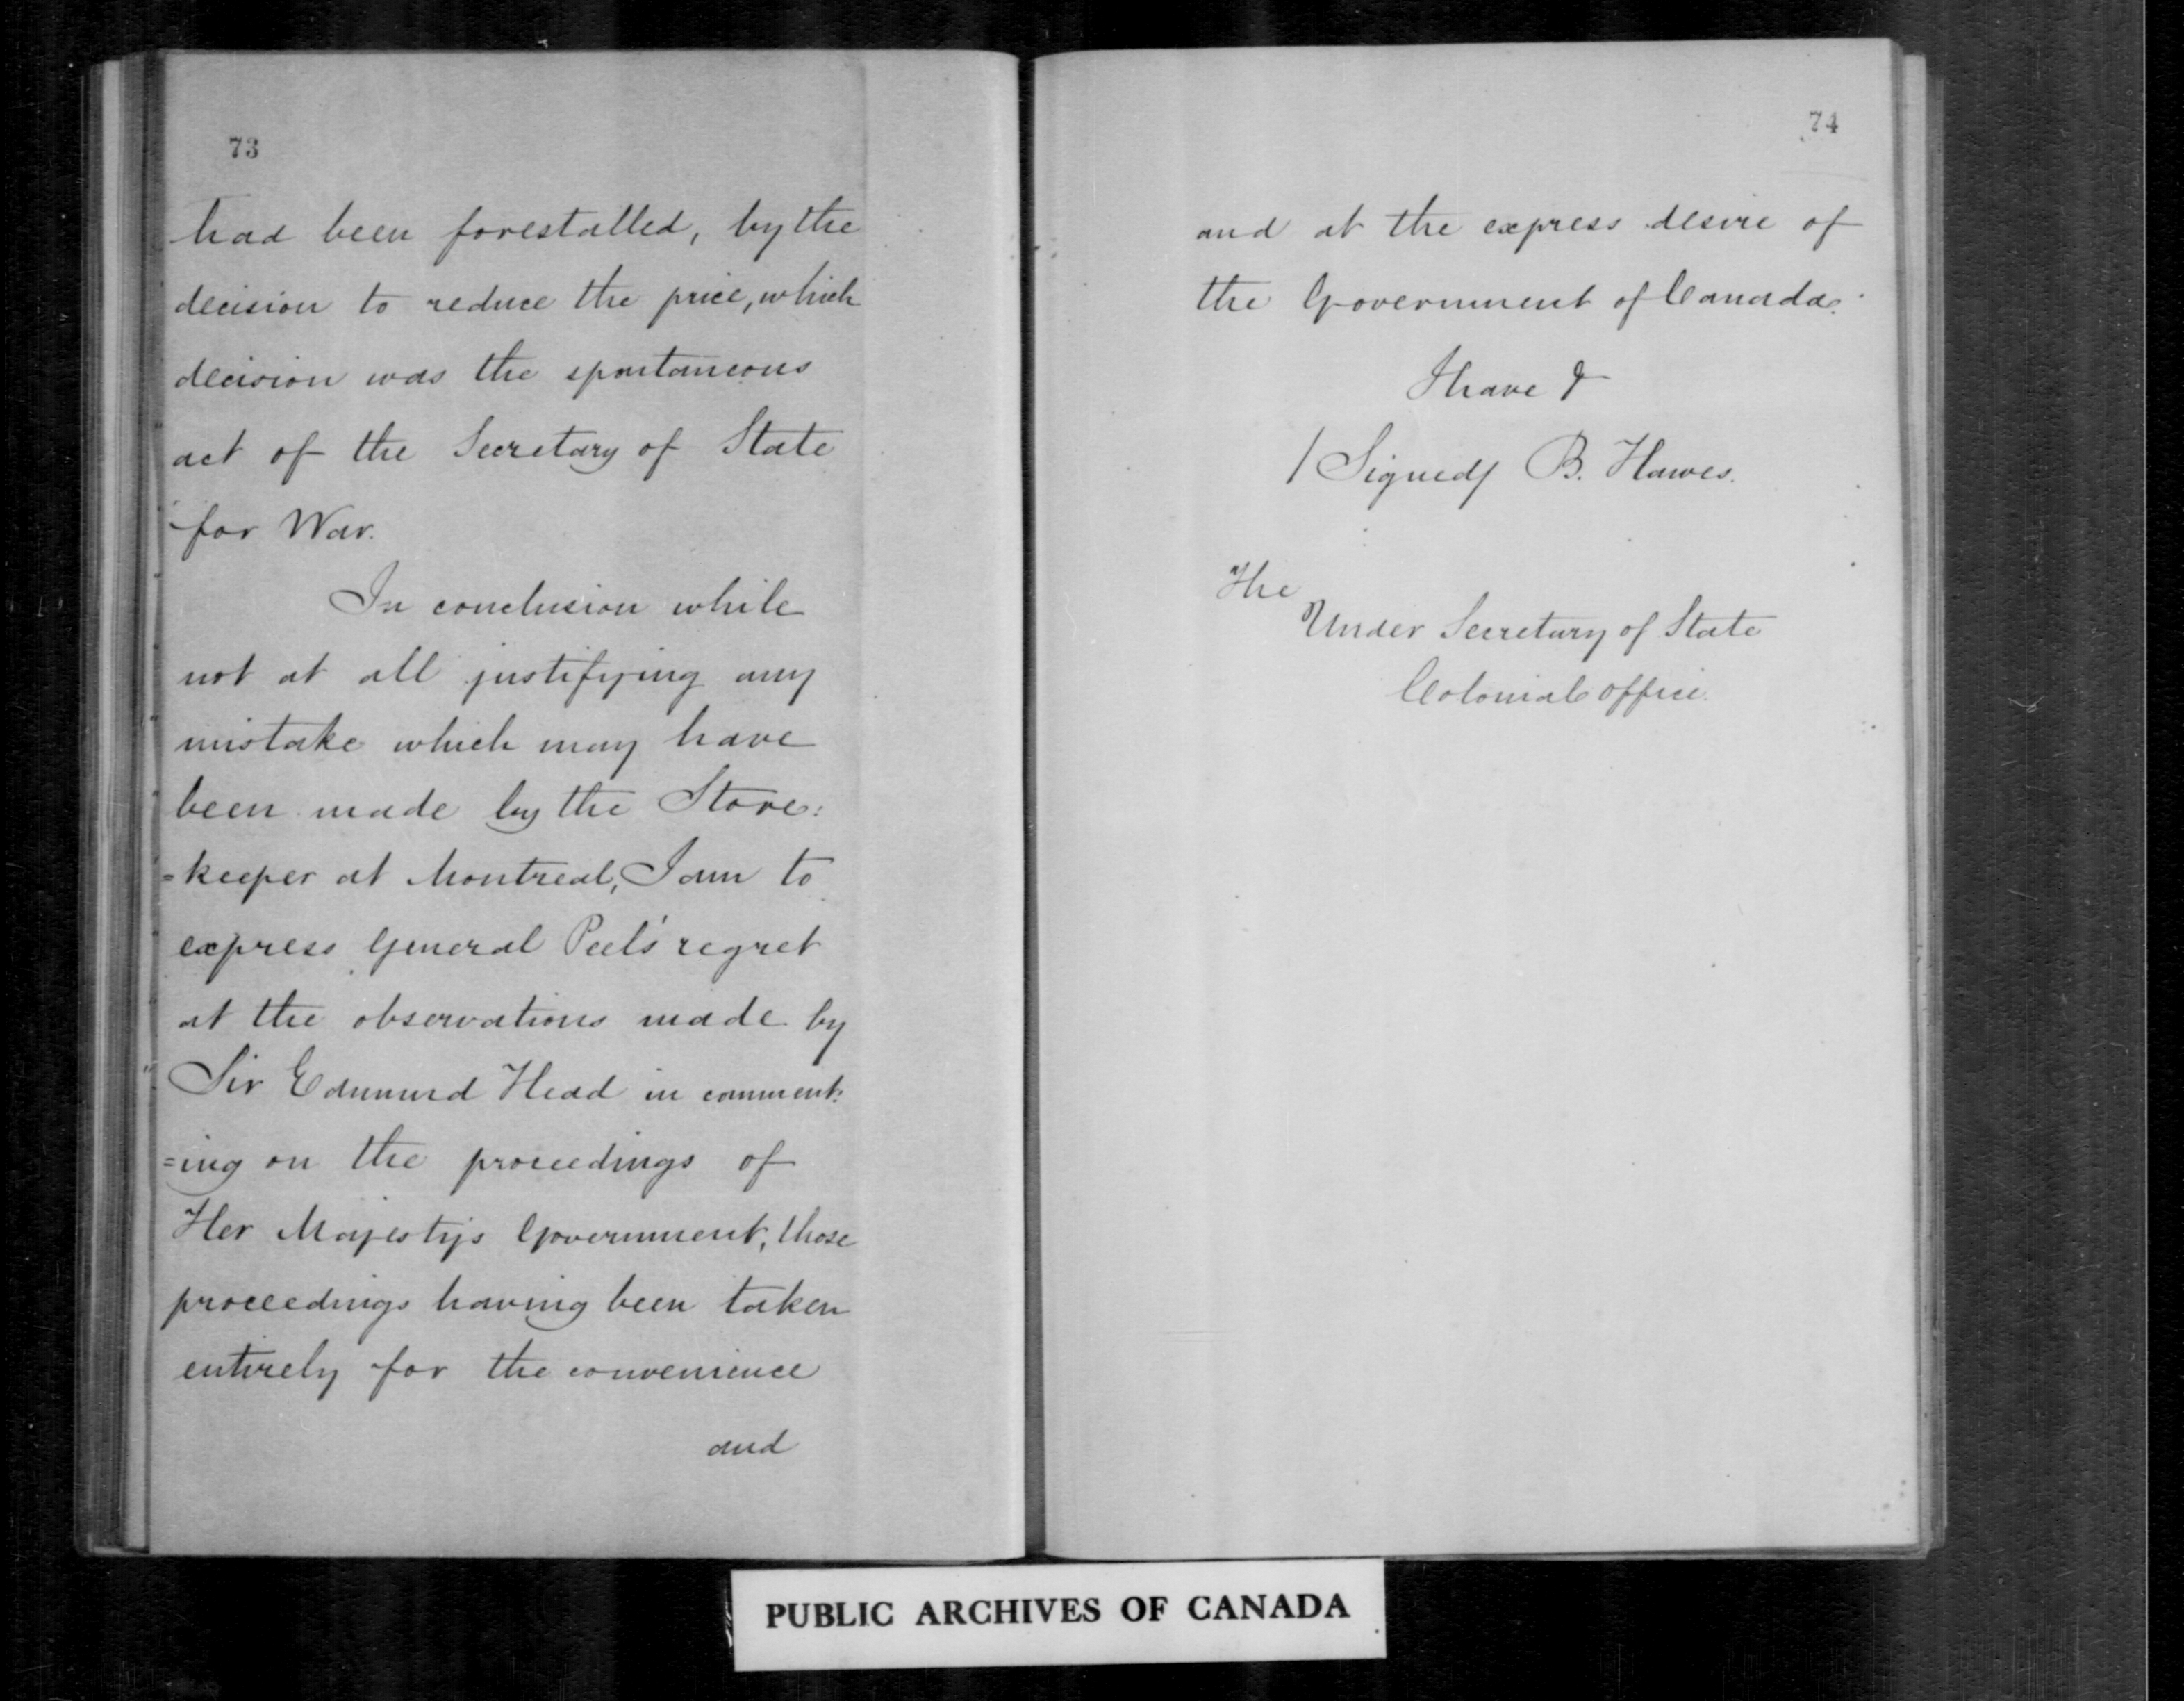 73
had been forestalled, by the
decision to reduce the price, which
decision was the spontaneous
act of the Secretary of State
for War.
In conclusion while
not at all justifying any
mistake which may have
been made by the Store:
=keeper at Montreal, I am to
express General Peel's regret
at the observations made by
Sir Edmund Head in comment:
=ing on the proceedings of
Her Majestys Government, those
proceedings having been taken
entirely for the convenience
and
74
and at the express desire of
the Government of Canada.
I have &
/Signed/ B. Hawes.
The
Under Secretary of State
Colonial Office.
PUBLIC ARCHIVES OF CANADA